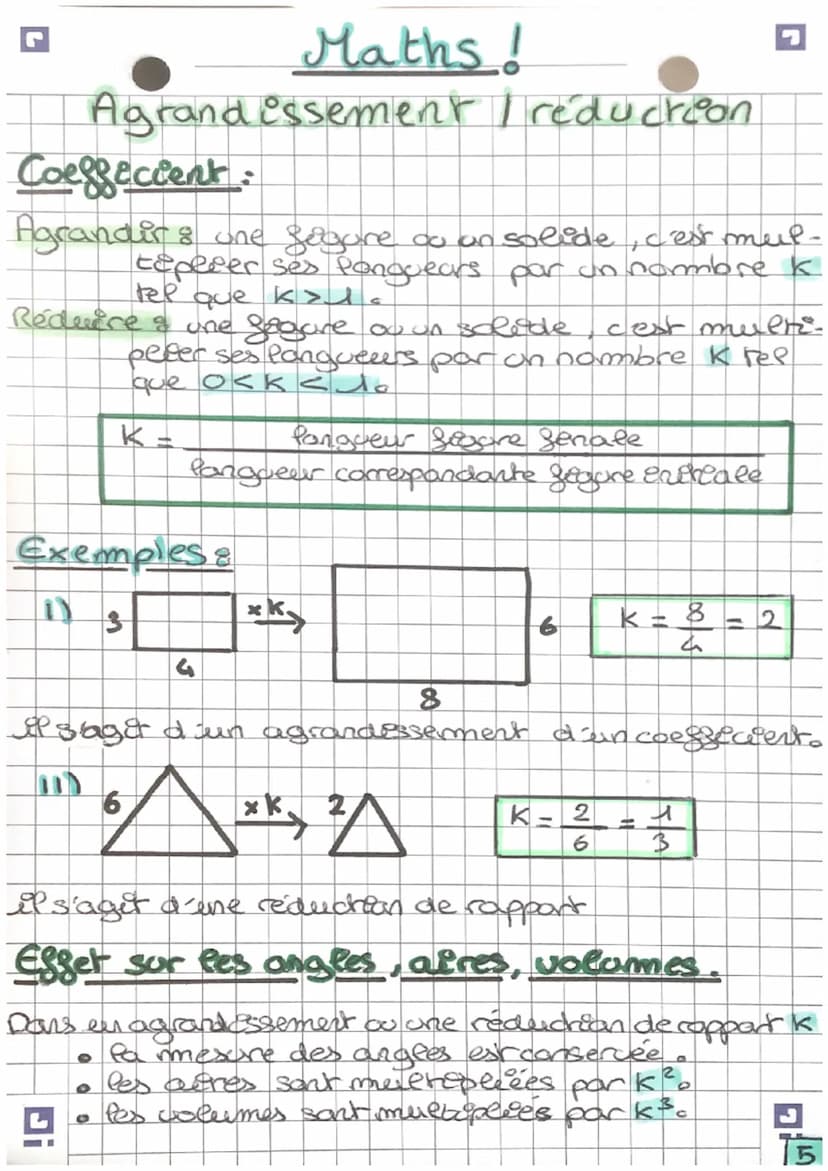 Maths !
Agrandissement / réduction
Coefficient :
Agrandir : une figure ou un solide, c'est mul-
tiplier ses longueurs par un nombre K
tel que K > 1.
Réduire : une figure ou un solide, c'est multi-
plier ses longueurs par un nombre K tel
que 0 < K < 1.
K = longueur figure finale
longueur correspondante figure initiale
Exemples :
i) 3 4 ×K 6 8 K = 8/4 = 2
il s'agit d'un agrandissement d'un coefficient.
ii) 6 ×K 2 K = 2/6 = 1/3
il s'agit d'une réduction de rapport
Effet sur les angles, aires, volumes.
Dans un agrandissement ou une réduction de rapport K
• la mesure des angles est conservée.
• les aires sont multipliées par K².
• les volumes sont multipliés par K³.
5